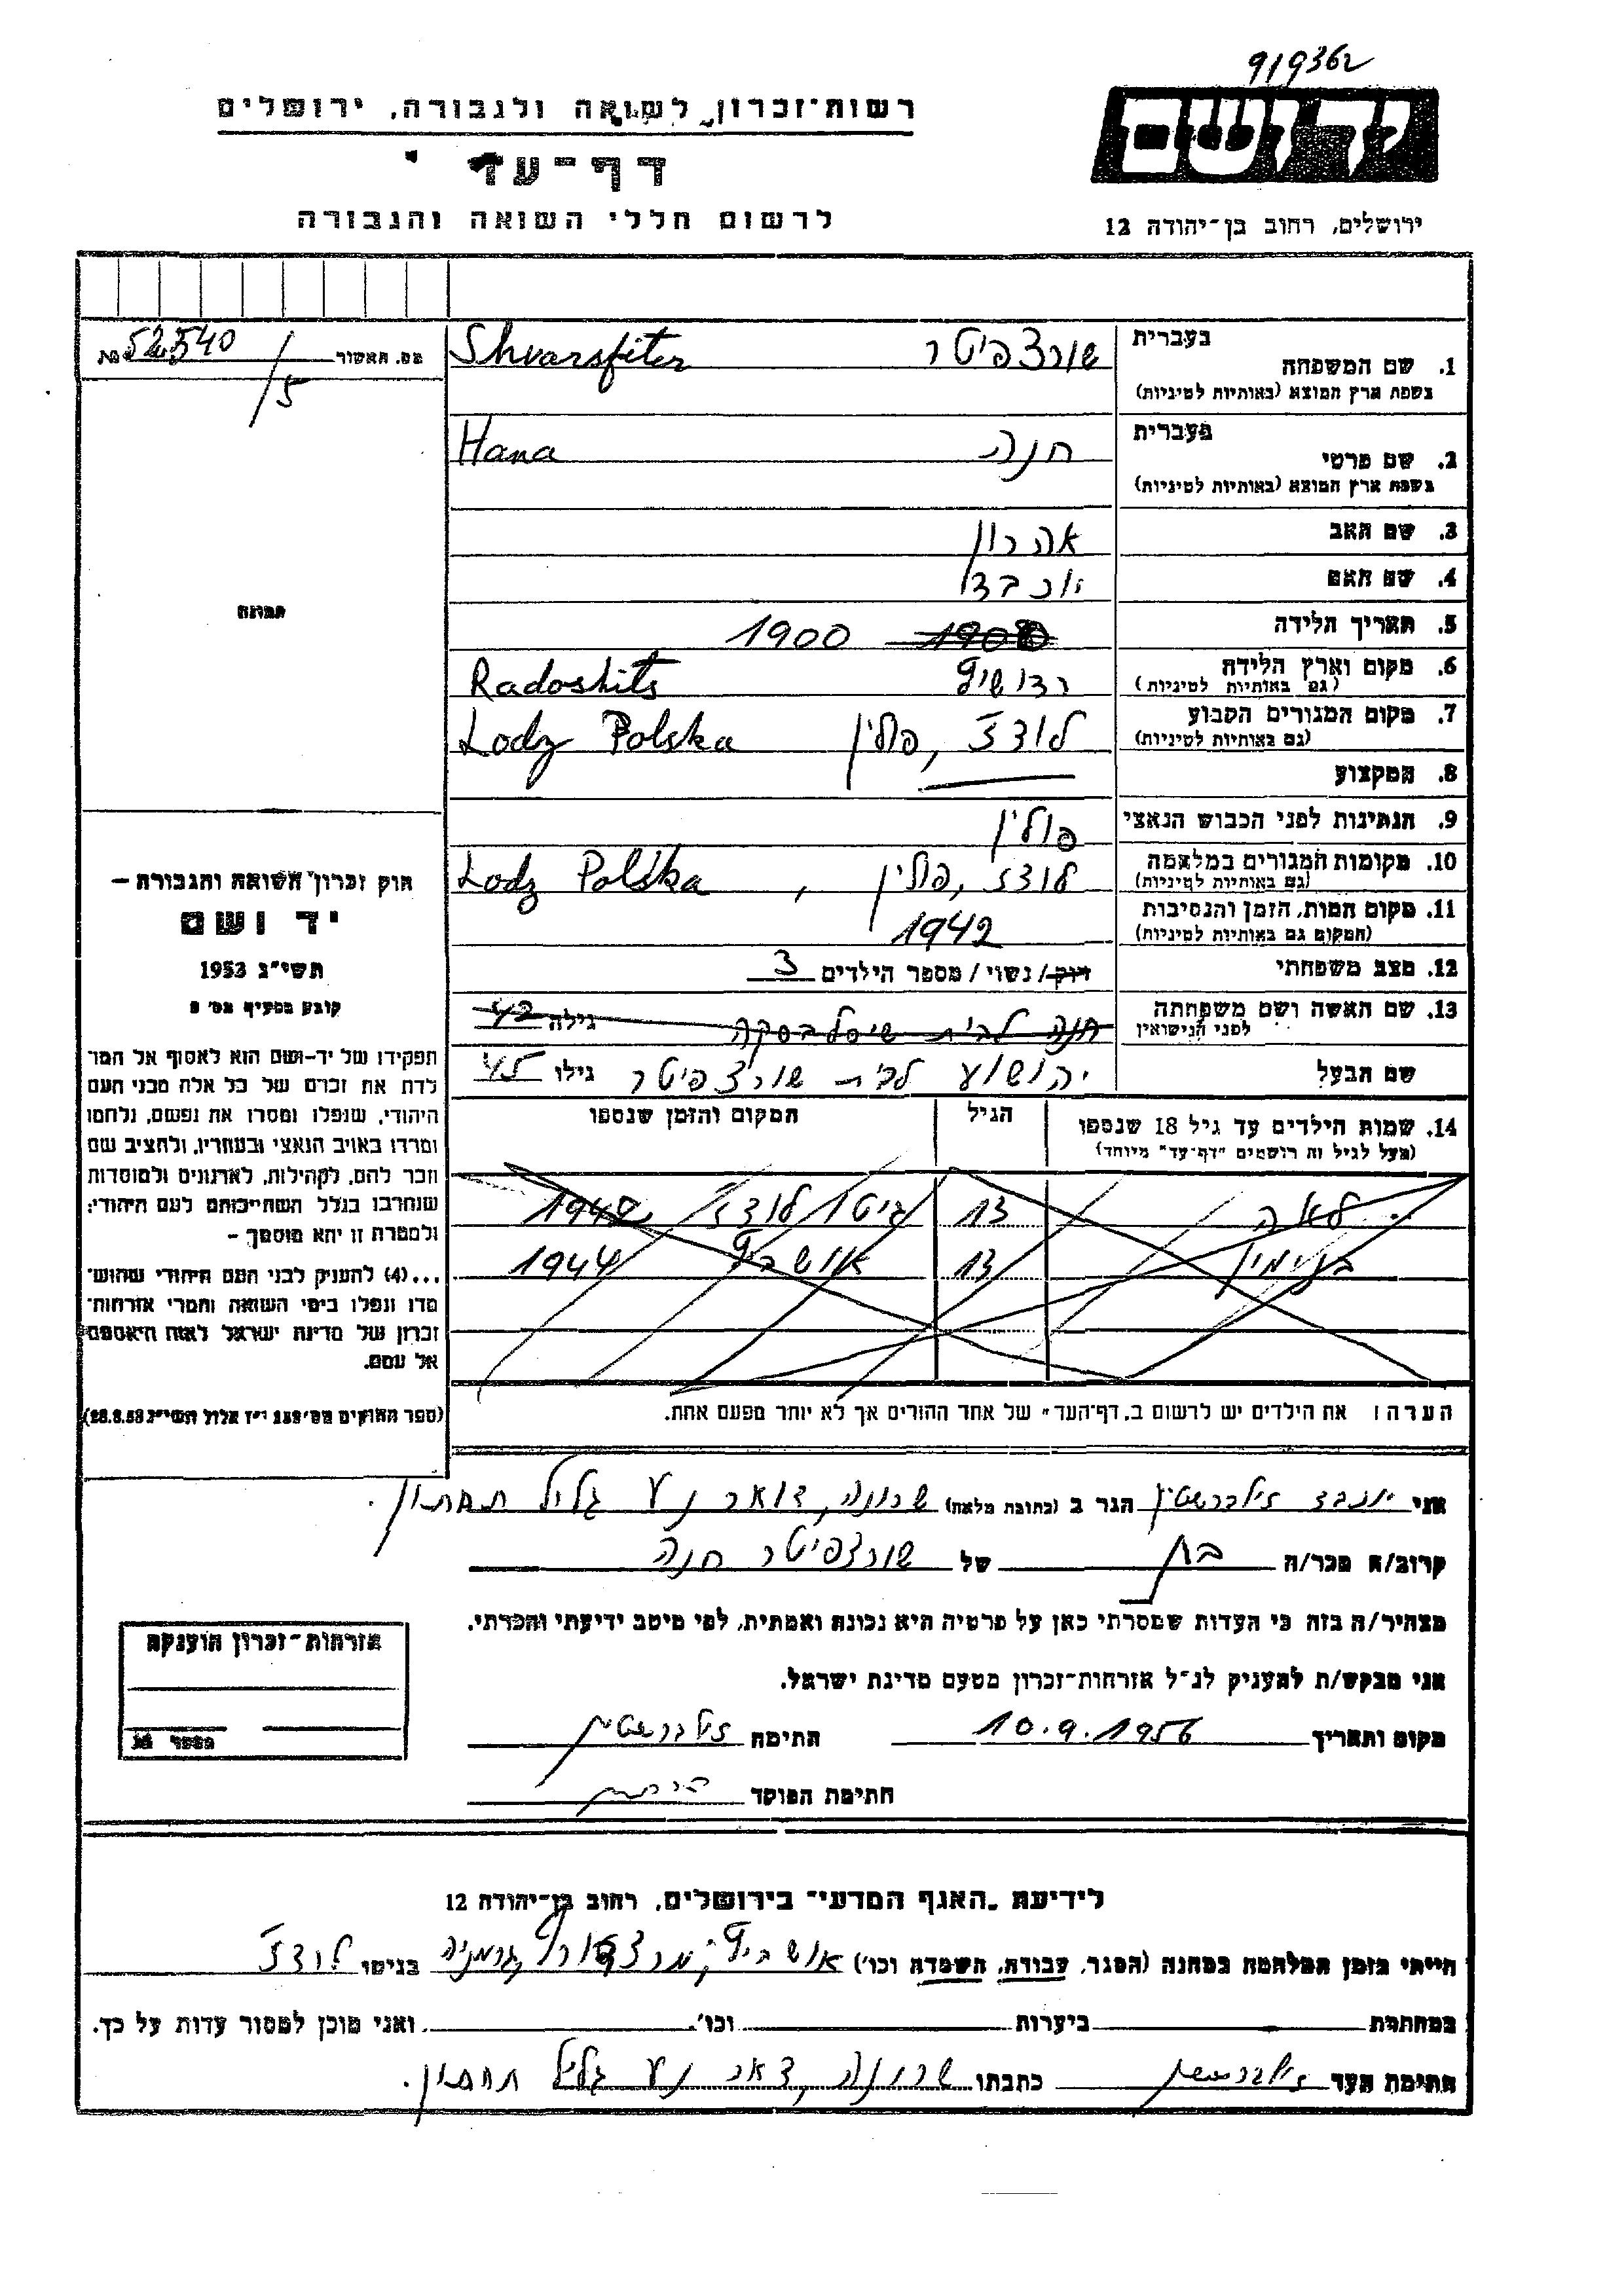 919362
רשות־זכרון לשואה ולגבורה, ירושלים
יד ושם
דף־עד
לרשום חללי השואה והגבורה
ירושלים, רחוב בן־יהודה 12
מס. האשור 52540 №
/5
בעברית שורצפיטר Shvarsfiter
1. שם המשפחה
בשפת ארץ המוצא (באותיות לטיניות)
בעברית חנה Hana
2. שם פרטי
בשפת ארץ המוצא (באותיות לטיניות)
3. שם האב אהרון
4. שם האם יוכבד
5. תאריך הלידה 1900
6. מקום וארץ הלידה רדושיץ Radoshits
(גם באותיות לטיניות)
7. מקום המגורים הקבוע לודז', פולין Lodz Polska
(גם באותיות לטיניות)
8. המקצוע
9. הנתינות לפני הכבוש הנאצי פולין
10. מקומות המגורים במלחמה לודז, פולין, Lodz Polska
(גם באותיות לטיניות)
11. מקום המות, הזמן והנסיבות 1942
(המקום גם באותיות לטיניות)
12. מצב משפחתי רוק/ נשוי / מספר הילדים 3
13. שם האשה ושם משפחתה חנה לבית גילה 42
לפני הנישואין
שם הבעל יהושוע לבית שורצפיטר גילו 45
14. שמות הילדים עד גיל 18 שנספו הגיל המקום והזמן שנספו
(מעל לגיל זה רושמים "דף־עד" מיוחד)
לאה 13 גיטו לודז'
בנימין 13 אושביץ 1944
הערה: את הילדים יש לרשום ב„דף־העד" של אחד ההורים אך לא יותר מפעם אחת.
תמונה
חוק זכרון השואה והגבורה —
יד ושם
תשי"ג 1953
קובע בסעיף מס'
תפקידו של יד־ושם הוא לאסוף אל המו־
לדת את זכרם של כל אלה מבני העם
היהודי, שנפלו ומסרו את נפשם, נלחמו
ומרדו באויב הנאצי ובעוזריו, ולהציב שם
וזכר להם, לקהילות, לארגונים ולמוסדות
שנחרבו בגלל השתייכותם לעם היהודי;
ולמטרת זו יהא מוסמך —
...(4) להעניק לבני העם היהודי שהוש־
מדו ונפלו בימי השואה והמרי אזרחות־
זכרון של מדינת ישראל לאות היאספם
אל עמם.
(ספר החוקים מס' 132 י"ז אלול תשי"ג 28.8.53)
אני יוכבד זילברשטין הגר ב (כתובת מלאה) שרונה, דואר נע גליל תחתון.
קרוב/ה מכר/ה בת של שורצפיטר חנה
מצהיר/ה בזה כי העדות שמסרתי כאן על פרטיה היא נכונה ואמתית, לפי מיטב ידיעתי והכרתי.
אני מבקש/ת להעניק לנ"ל אזרחות־זכרון מטעם מדינת ישראל.
מקום ותאריך 10.9.1956 חתימה זילברשטין
חתימת הפוקד
אזרחות־זכרון הוענקה
מספר №
לידיעת „האגף המדעי" בירושלים, רחוב בן־יהודה 12
הייתי בזמן המלחמה במחנה (הסגר, עבודה, השמדה וכו') אושביץ, גרמניה בגיטו לודז'
במחתרת ביערות וכו'. ואני מוכן למסור עדות על כך.
חתימת העד זילברשטין כתבתו שרונה, דאר נע גליל תחתון.